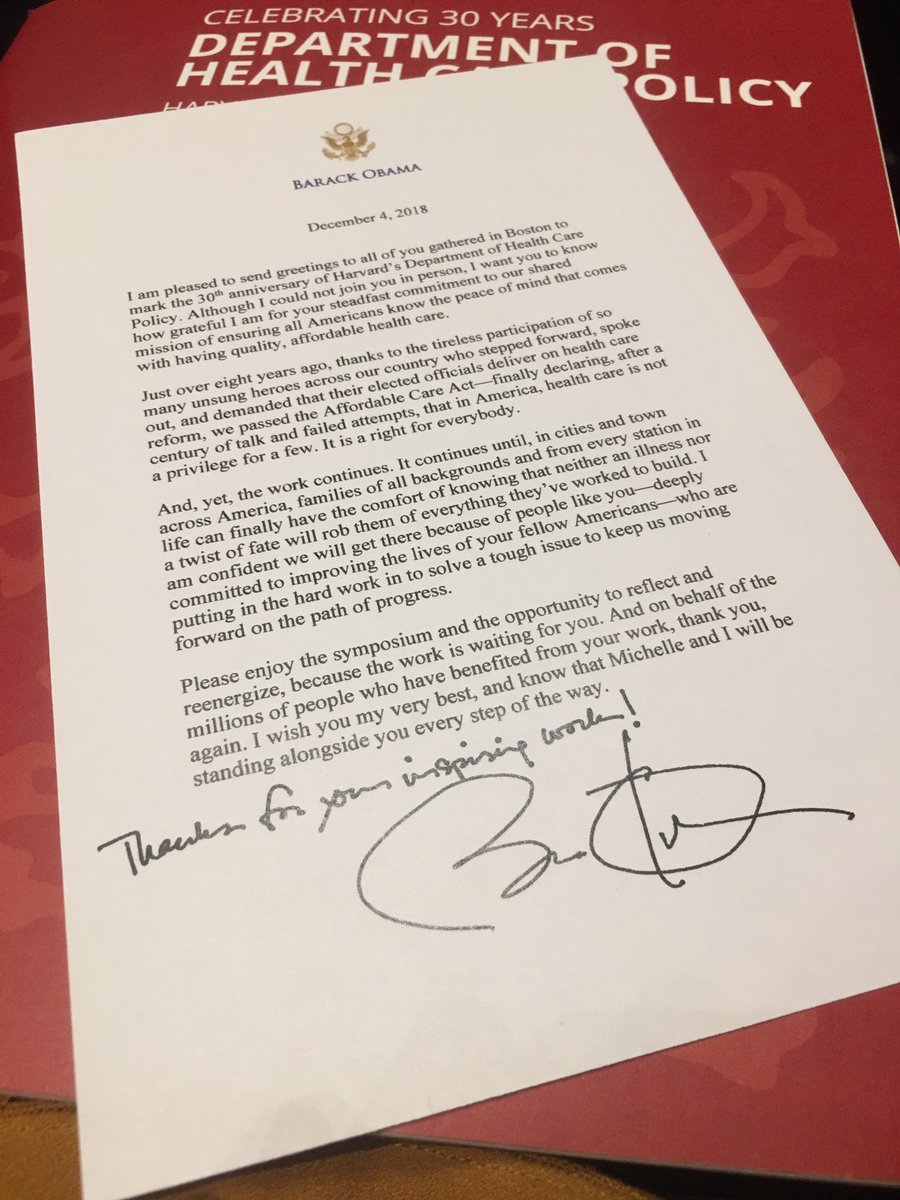 CELEBRATING 30 YEARS
DEPARTMENT OF
HEALTH CA POLICY
HARV
BARACK OBAMA
December 4, 2018
I am pleased to send greetings to all of you gathered in Boston to
mark the 30th anniversary of Harvard's Department of Health Care
Policy. Although I could not join you in person, I want you to know
how grateful I am for your steadfast commitment to our shared
mission of ensuring all Americans know the peace of mind that comes
with having quality, affordable health care.
Just over eight years ago, thanks to the tireless participation of so
many unsung heroes across our country who stepped forward, spoke
out, and demanded that their elected officials deliver on health care
reform, we passed the Affordable Care Act—finally declaring, after a
century of talk and failed attempts, that in America, health care is not
a privilege for a few. It is a right for everybody.
And, yet, the work continues. It continues until, in cities and town
across America, families of all backgrounds and from every station in
life can finally have the comfort of knowing that neither an illness nor
a twist of fate will rob them of everything they've worked to build. I
am confident we will get there because of people like you—deeply
committed to improving the lives of your fellow Americans—who are
putting in the hard work in to solve a tough issue to keep us moving
forward on the path of progress.
Please enjoy the symposium and the opportunity to reflect and
reenergize, because the work is waiting for you. And on behalf of the
millions of people who have benefited from your work, thank you,
again. I wish you my very best, and know that Michelle and I will be
standing alongside you every step of the way.
Thanks for your inspiring work!